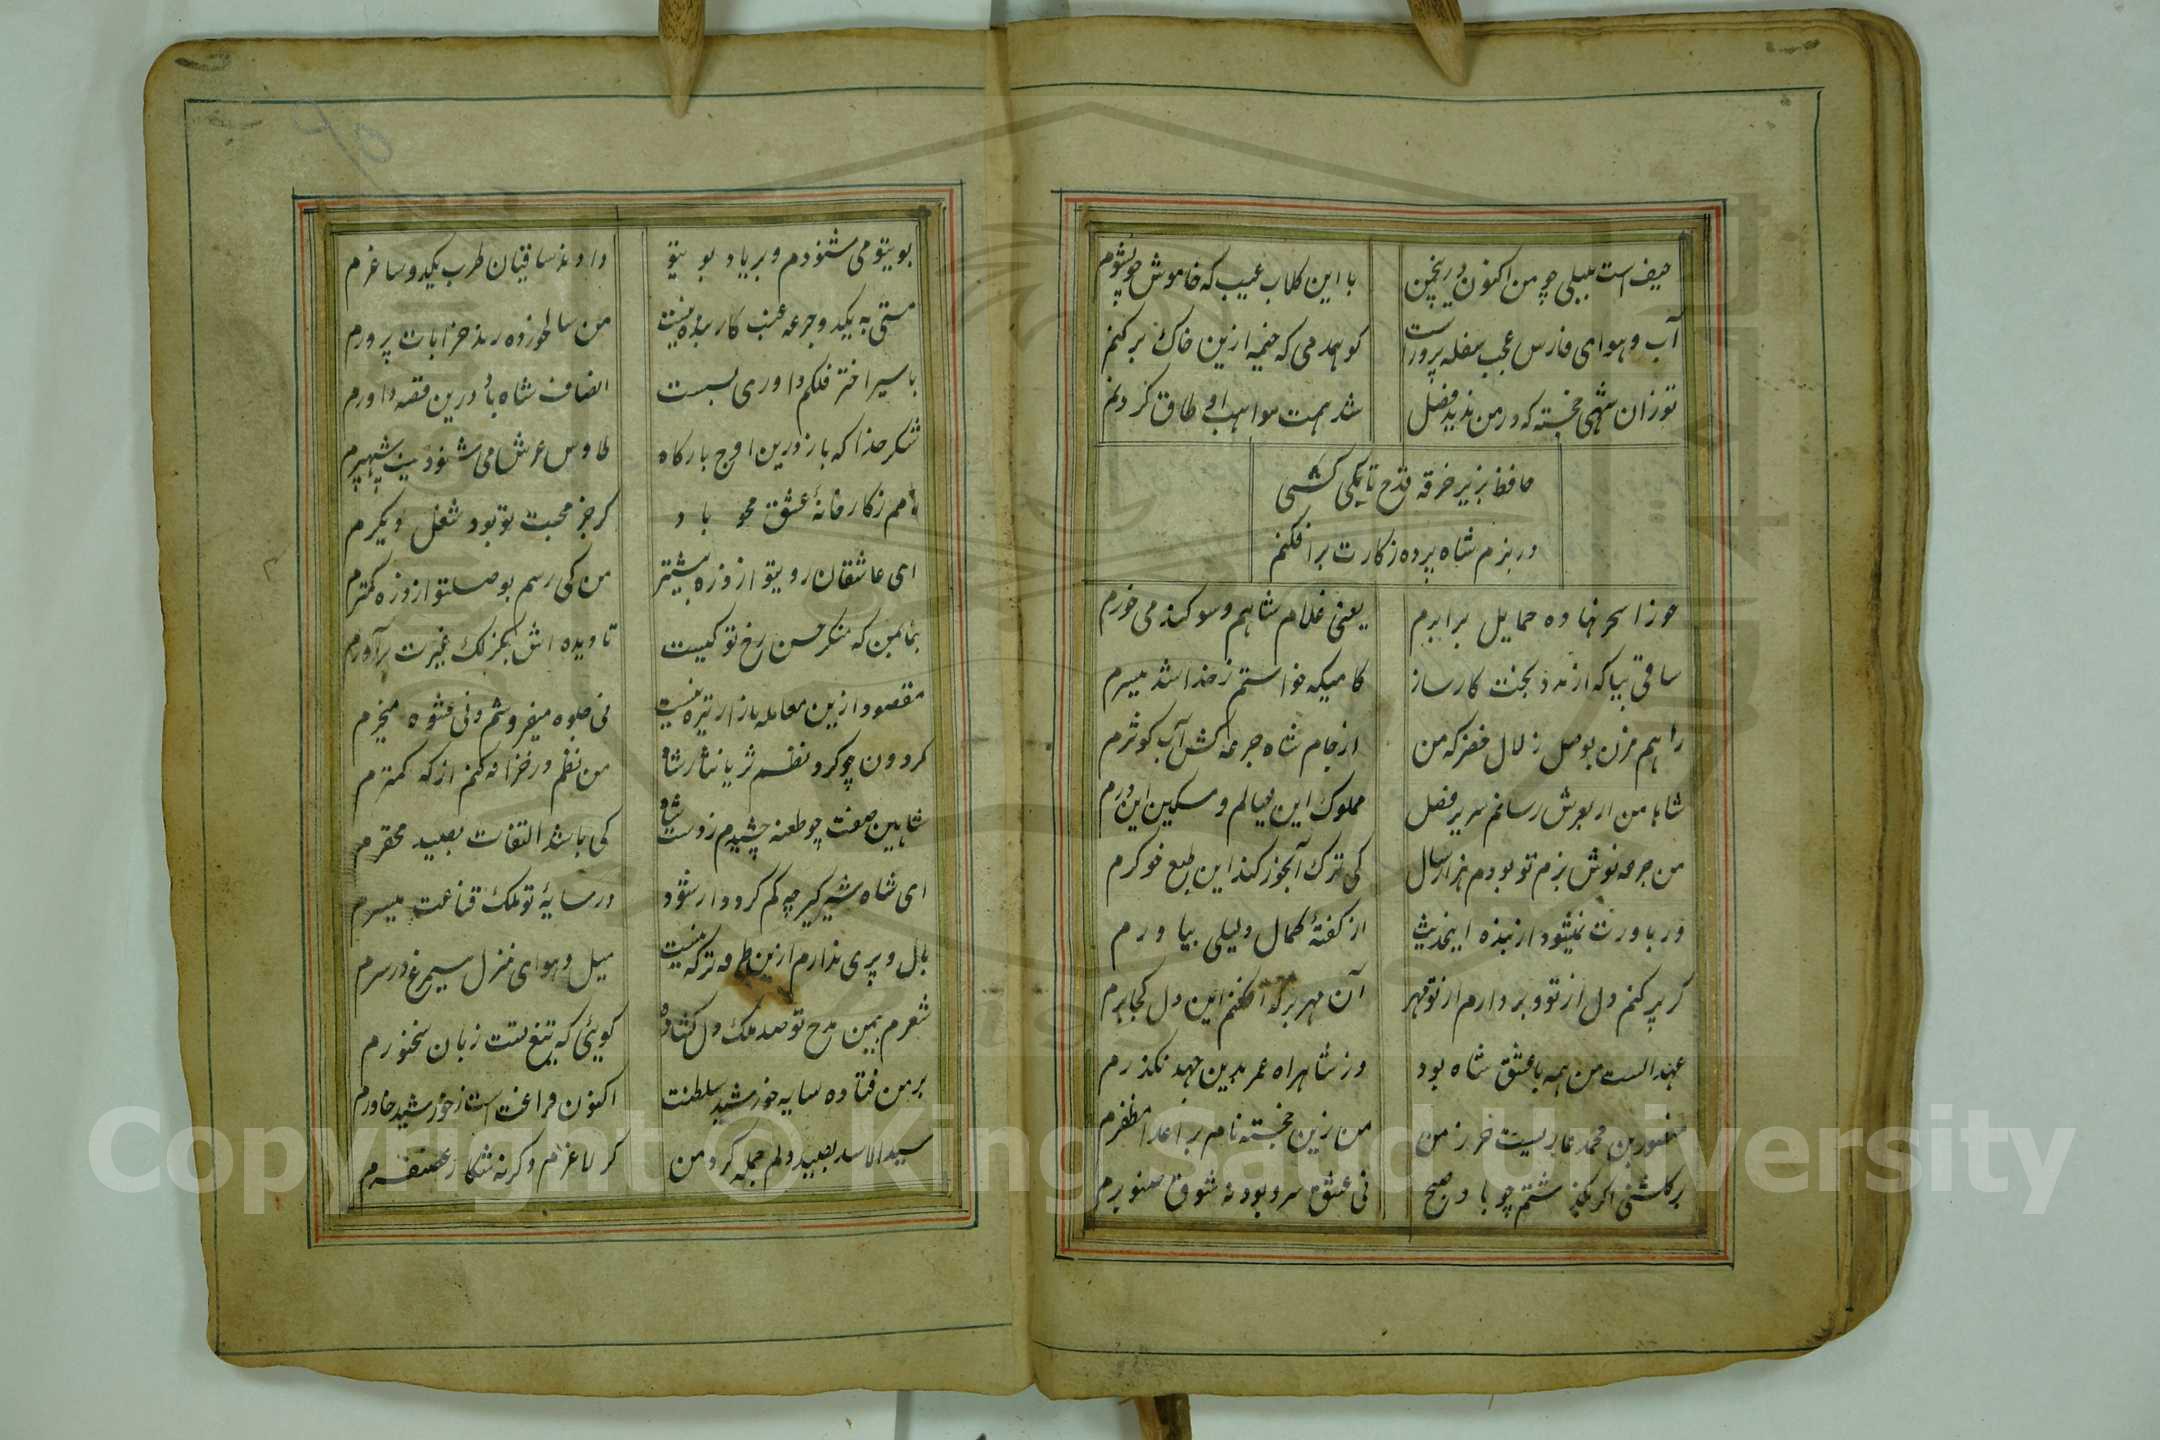 حیف است بلبلی چو من اکنون درین چمن با این کلاب عیب که خاموش چو
آب و هوای فارس عجب سفله پرورست کو همدمی که خیمه ازین خاک بر کنم
تورانشهی خجسته که در من ندید فضل شد همت مواهب او طاق گردنم
حافظ بزیر خرقه قدح تا بکی کشی
در بزم شاه پرده ز کارت برافکنم
جوزا سحر نهاده حمایل برابرم یعنی غلام شاهم و سوکند می خورم
ساقی بیا که از مدد بخت کارساز کامیکه خواستم ز خدا شد میسرم
راهم مزن بوصل زلال خضر که من از جام شاه جرعه کش آب کوثرم
شاها من ار بعرش رسانم سریر فضل مملوک این عیالم و مسکین این درم
من جرعه نوش بزم تو بودم هزار سال کی ترک آبخور کند این طبع خو کرم
ور باورت نمیشود از بنده اینحدیث از گفتهٔ کمال دلیلی بیاورم
گر بر کنم دل از تو و بردارم از تو مهر آن مهر بر که افکنم این دل کجا برم
عهد الست من همه با عشق شاه بود وز شاهراه عمر بدین جهد نکذرم
منصور بن محمد غازیست حرز من من زین خجسته نام بر اعدا مظفرم
بر گلشنی اگر بگذشتم چو باد صبح نی عشق سرو بود نه شوق صنوبرم
بویتو می شنودم و بر یاد بویتو دادند ساقیان طرب یکدو ساغرم
مستی به یکدو جرعه عنب کار بنده نیست من سالخورده رند خرابات پرورم
با سیر اختر فلکم داوری بسست انصاف شاه باد درین قصه داورم
شکر خدا که باز درین اوج بارگاه طاوس عرش می شنود صیت شهپرم
نامم ز کارخانهٔ عشق محو باد گر جز محبت تو بود شغل دیگرم
ای عاشقان رویتو از ذره بیشتر من کی رسم بوصلتو از ذره کمترم
بنما بمن که منکر حسن رخ تو کیست تا دیده اش بگزلک غیرت برآورم
مقصود ازین معامله بازار تیزه نیست نی جلوه میفروشم و نی عشوه میخرم
گردون چو کرد نظم ثریا نثار شاه من نظم در خزانه کنم از که کمترم
شاهین صفت چو طعمه چشیدم ز دست شاه کی باشد التفات بصید محقرم
ای شاه شیرگیر چه کم گردد ار شود در سایهٔ تو ملک قناعت میسرم
بال و پری ندارم ازین طرفه تر که نیست میل و هوای منزل سیمرغ در سرم
شعرم بیمن مدح تو صد ملک دل کشاد گویئی که تیغ تست زبان سخنورم
بر من فتاده سایه خورشید سلطنت اکنون فراغت است از خورشید خاورم
سید الاسد بصید دلم حمله کرد و من گر لاغرم وگرنه شکار غضنفرم